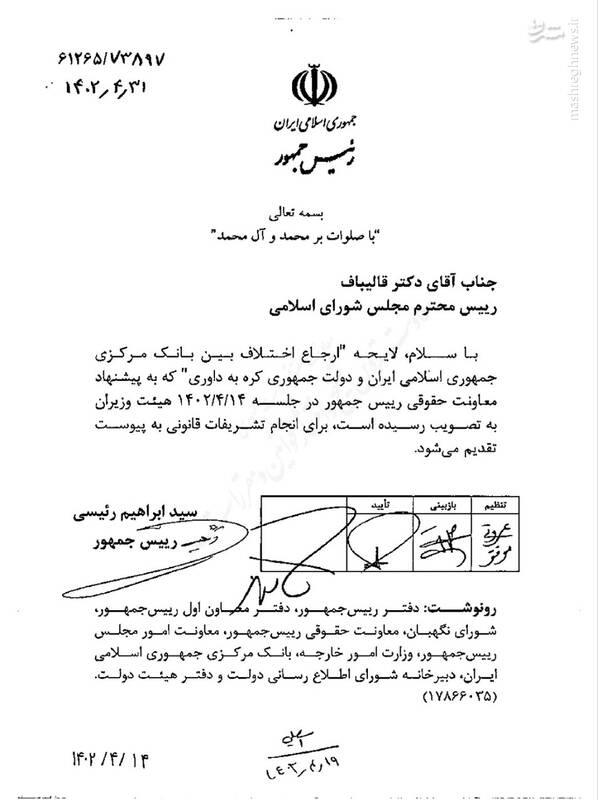 مشرق
mashreghnews.ir
۶۱۲۶۵/۷۳۸۹۷
۱۴۰۲٫۴٫۳۱
جمهوری اسلامی ایران
رئیس جمهور
بسمه تعالی
"با صلوات بر محمد و آل محمد"
جناب آقای دکتر قالیباف
رییس محترم مجلس شورای اسلامی
با سلام، لایحه "ارجاع اختلاف بین بانک مرکزی
جمهوری اسلامی ایران و دولت جمهوری کره به داوری" که به پیشنهاد
معاونت حقوقی رییس جمهور در جلسه ۱۴۰۲/۴/۱۴ هیئت وزیران
به تصویب رسیده است، برای انجام تشریفات قانونی به پیوست
تقدیم می‌شود.
سید ابراهیم رئیسی
رییس جمهور
تنظیم بازبینی تأیید
رونوشت: دفتر رییس‌جمهور، دفتر معاون اول رییس‌جمهور،
شورای نگهبان، معاونت حقوقی رییس‌جمهور، معاونت امور مجلس
رییس‌جمهور، وزارت امور خارجه، بانک مرکزی جمهوری اسلامی
ایران، دبیرخانه شورای اطلاع رسانی دولت و دفتر هیئت دولت.
(۱۷۸۶۶۰۳۵)
۱۴۰۲/۴/۱۴